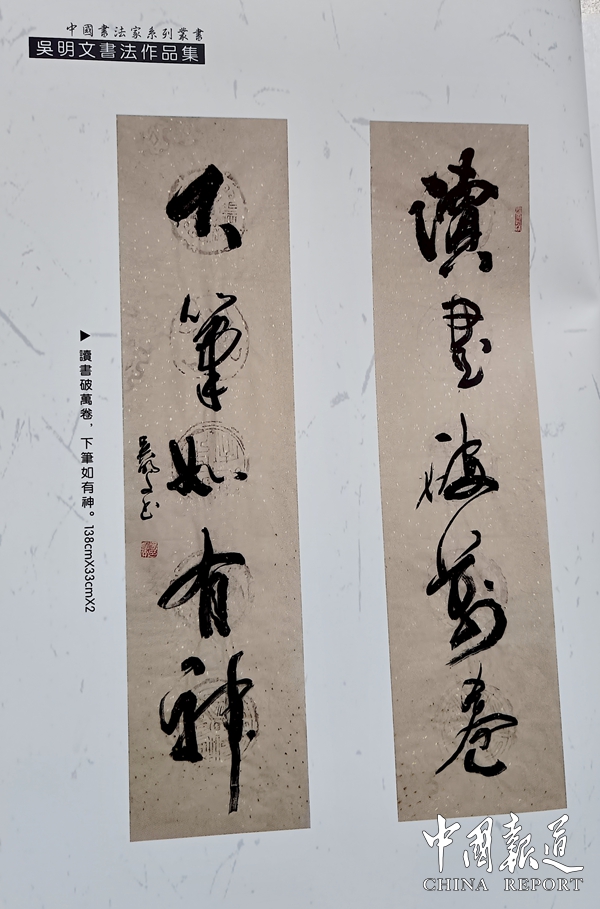 中國書法家系列叢書
吳明文書法作品集
讀書破萬卷
下筆如有神
吳明文書
▶讀書破萬卷，下筆如有神。138cmX33cmX2
中國報道
CHINA REPORT